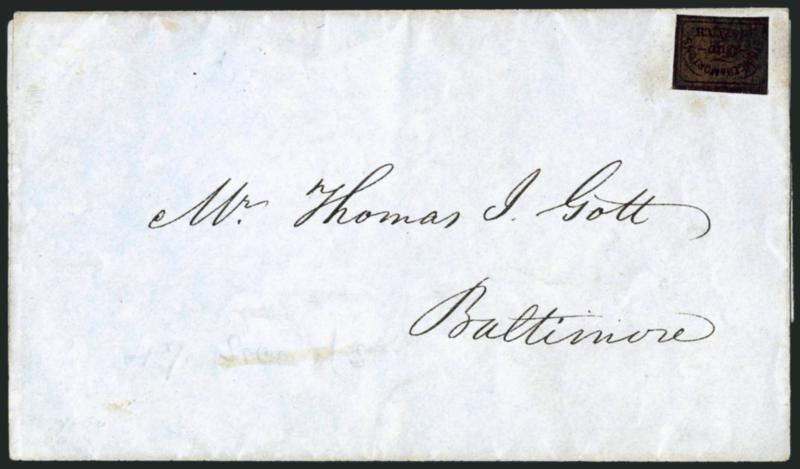 Mr. Thomas J. Gott
Baltimore
DESPATCH